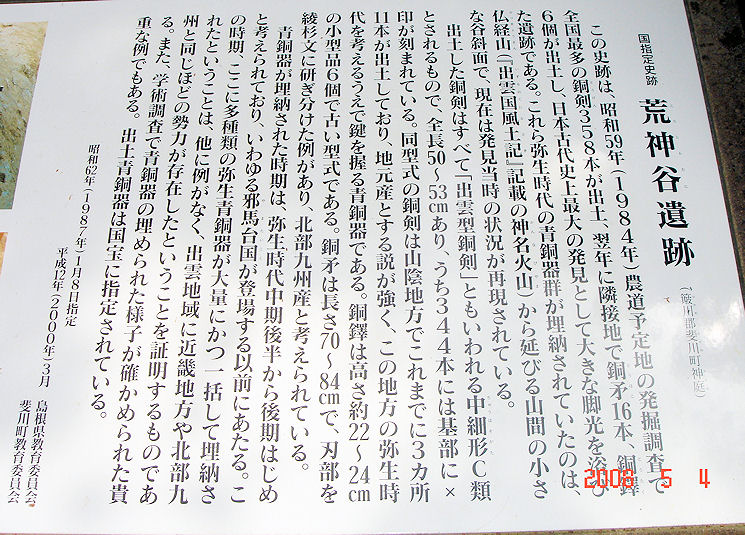 国指定史跡
荒神谷遺跡
(簸川郡斐川町神庭)
この史跡は、昭和59年(1984年)農道予定地の発掘調査で
全国最多の銅剣358本が出土、翌年に隣接地で銅矛16本、銅鐸
6個が出土し、日本古代史上最大の発見として大きな脚光を浴び
た遺跡である。これら弥生時代の青銅器群が埋納されていたのは、
仏経山(『出雲国風土記』記載の神名火山)から延びる山間の小さ
な谷斜面で、現在は発見当時の状況が再現されている。
出土した銅剣はすべて『出雲型銅剣』ともいわれる中細形C類
とされるもので、全長50〜53㎝あり、うち344本には基部に×
印が刻まれている。同型式の銅剣は山陰地方でこれまでに3カ所
11本が出土しており、地元産とする説が強く、この地方の弥生時
代を考えるうえで鍵を握る青銅器である。銅鐸は高さ約22〜24㎝
の小型品6個で古い型式である。銅矛は長さ70〜84㎝で、刃部を
綾杉文に研ぎ分けた例があり、北部九州産と考えられている。
青銅器が埋納された時期は、弥生時代中期後半から後期はじめ
と考えられており、いわゆる邪馬台国が登場する以前にあたる。こ
の時期、ここに多種類の弥生青銅器が大量にかつ一括して埋納さ
れたということは、他に例がなく、出雲地域に近畿地方や北部九
州と同じほどの勢力が存在したということを証明するものであ
る。また、学術調査で青銅器の埋められた様子が確かめられた貴
重な例でもある。出土青銅器は国宝に指定されている。
昭和62年(1987年)1月8日指定
平成12年(2000年)3月
島根県教育委員会
斐川町教育委員会
2008 5 4